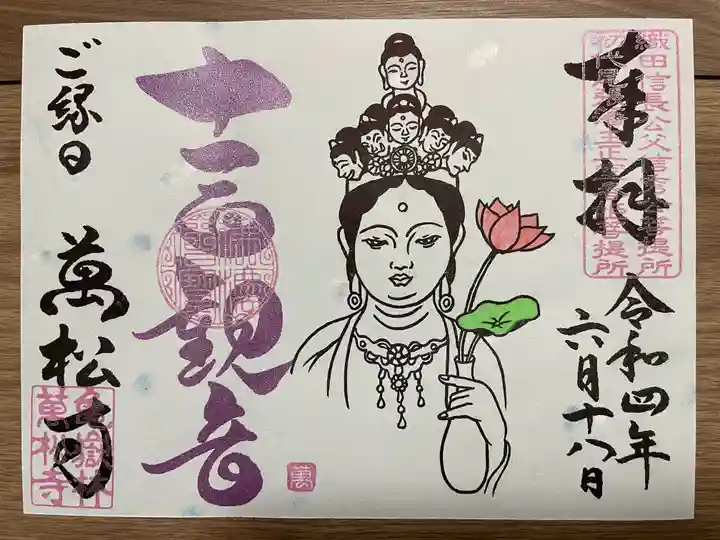 奉拝
織田信長公父信秀公菩提所
令和四年
六月十八日
十一面観音
萬
ご縁日
萬松寺
亀嶽林
萬松寺